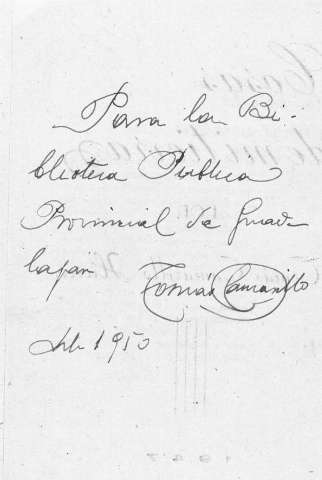 Para la Bi-
blioteca Publica
Provincial de Guada
lajara
Tomás Camarillo
1950